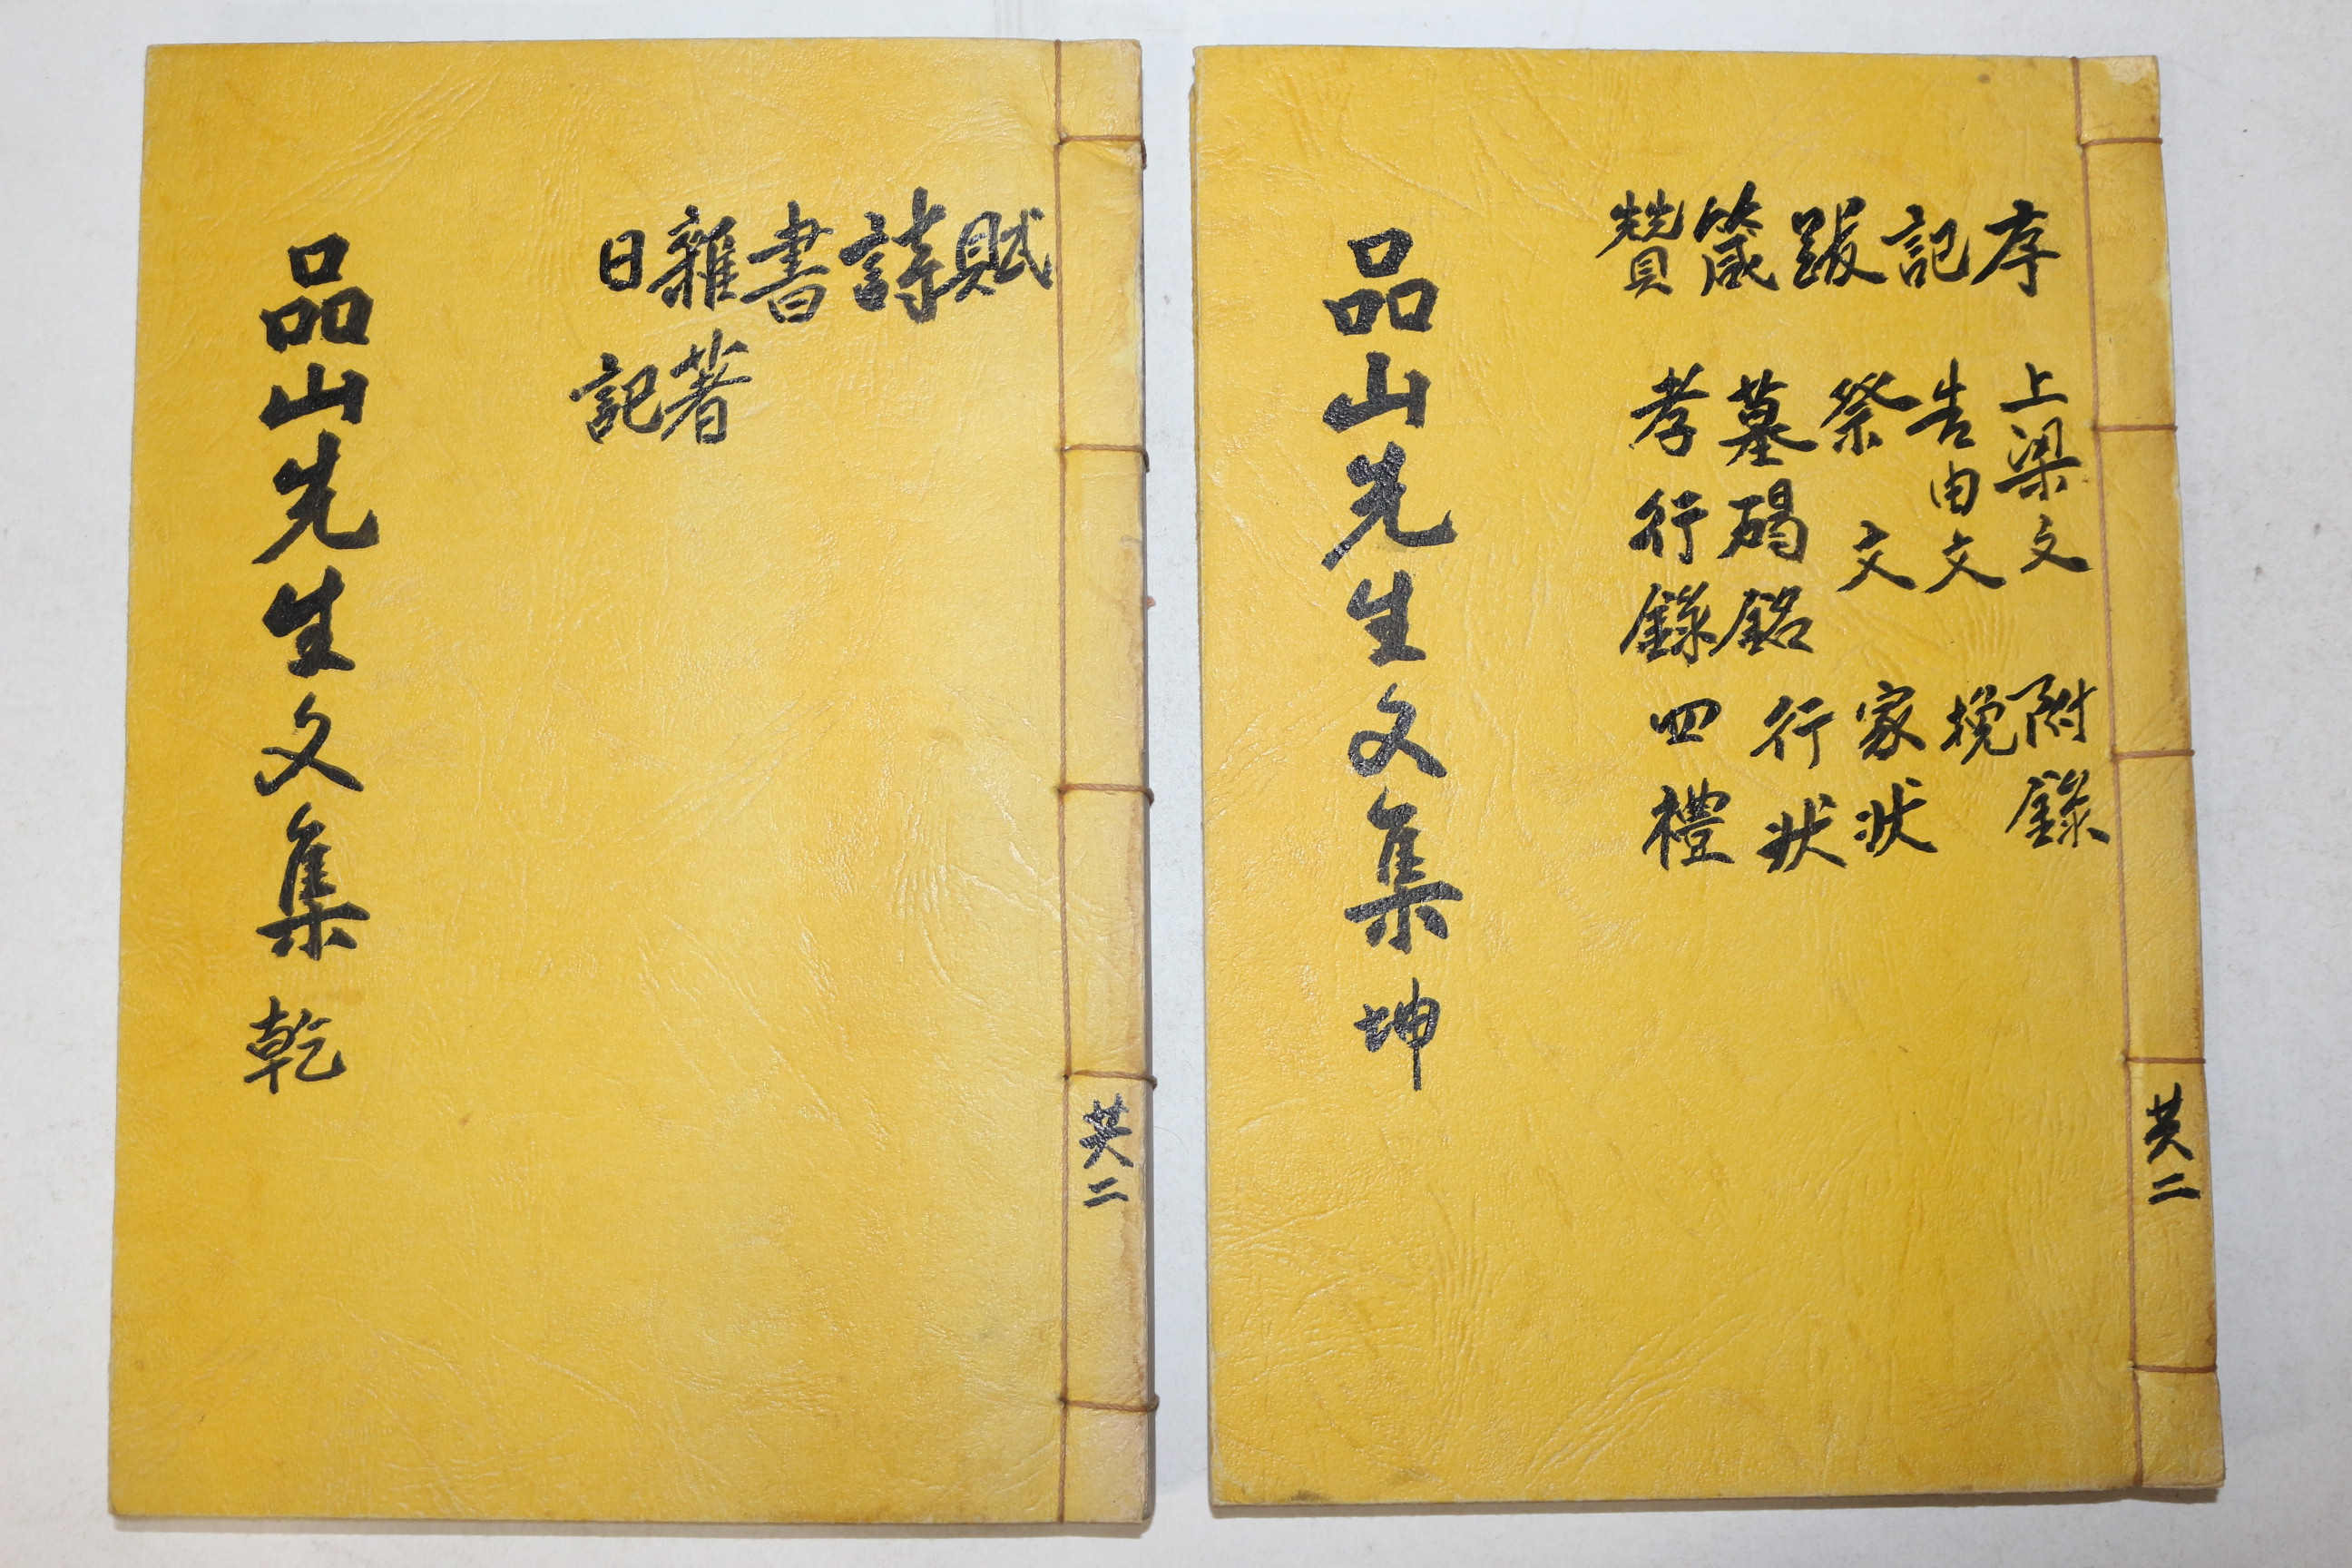 賦
詩
書
雜著
日記
品山先生文集 乾
共二
序
記
跋
箴
贊
上梁文
告由文
祭文
墓碣銘
孝行錄
附錄
挽
家狀
行狀
四禮
品山先生文集 坤
共二